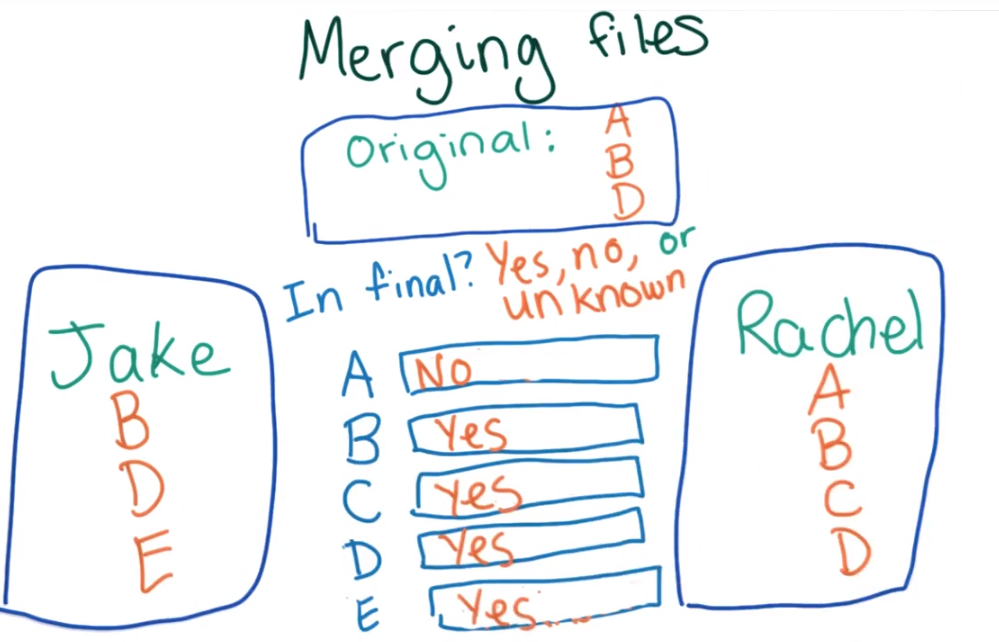 Merging files
Original:
A
B
D
In final? Yes, no, or
unknown
Jake
B
D
E
A No
B Yes
C Yes
D Yes
E Yes....
Rachel
A
B
C
D